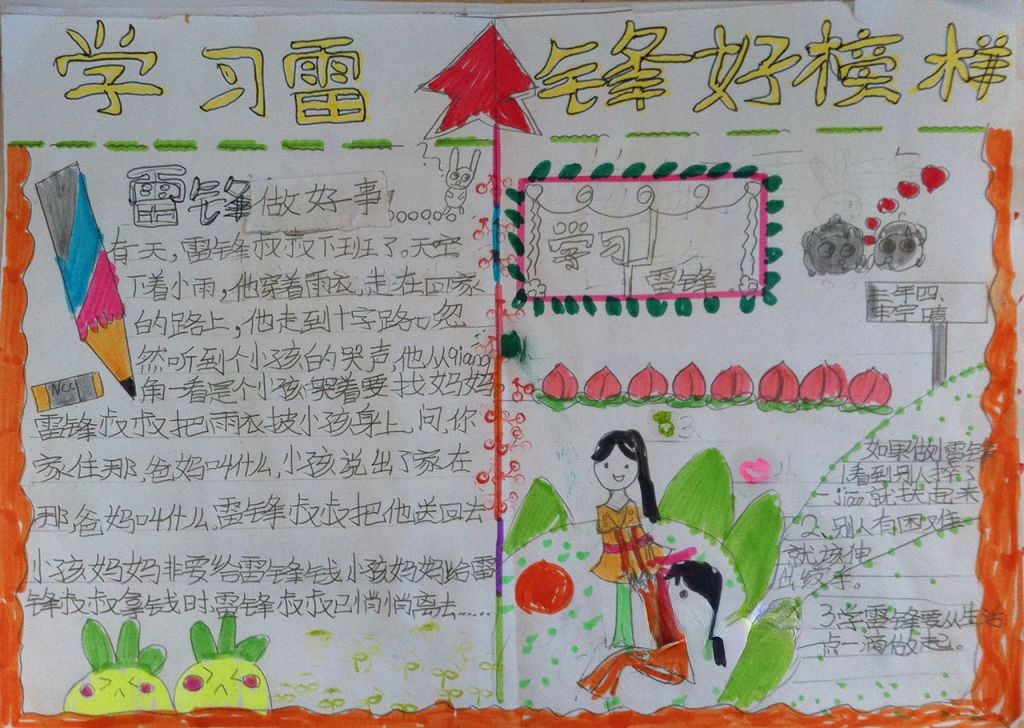 学习雷锋好榜样
雷锋做好事
有一天,雷锋叔叔下班了。天空
下着小雨,他穿着雨衣,走在回家
的路上,他走到十字路口,忽
然听到个小孩的哭声,他从qiang
角一看是个小孩哭着要找妈妈
雷锋叔叔把雨衣披小孩身上,问,你
家住那,爸妈叫什么,小孩说出了家在
那,爸妈叫什么,雷锋叔叔把他送回去
小孩妈妈非要给雷锋钱,小孩妈妈给雷
锋叔叔拿钱时,雷锋叔叔已悄悄离去……
NCC
学习
雷锋
年四、
如果做小雷锋
1看到别人摔了
jiao就扶起来
2、别人有困难
就该伸
出缓手。
3、学雷锋要从生活
一点一滴做起。